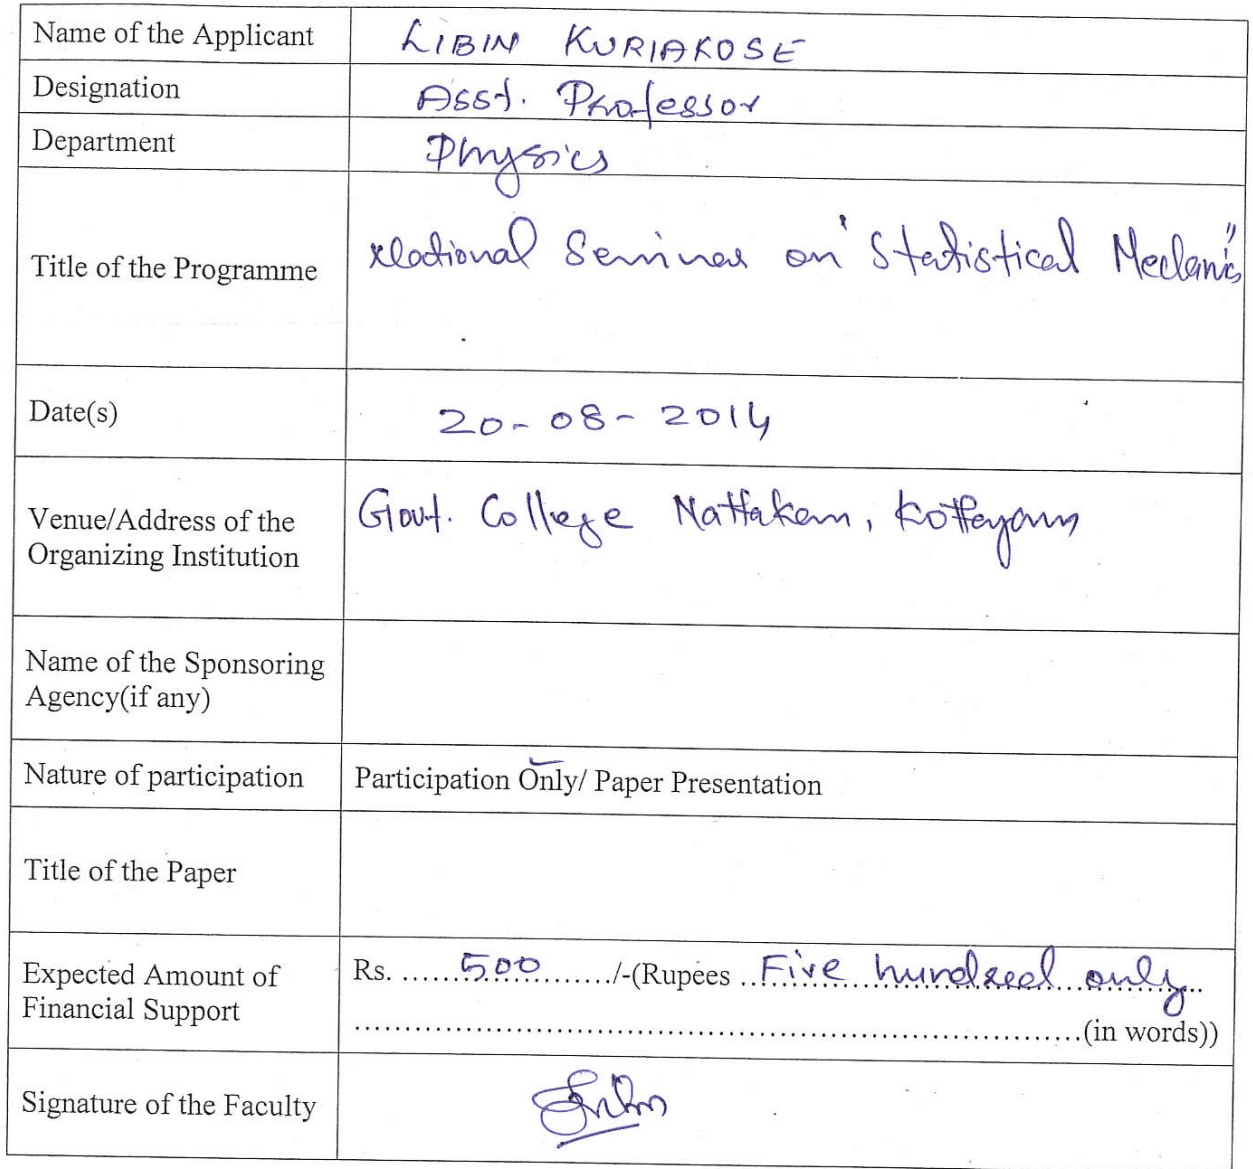 Name of the Applicant LIBIN KURIAKOSE
Designation Asst. Professor
Department Physics
Title of the Programme National Seminar on "Statistical Mechanics"
Date(s) 20-08-2014
Venue/Address of the
Organizing Institution
Govt. College Nattakam, Kottayam
Name of the Sponsoring
Agency(if any)
Nature of participation Participation Only/ Paper Presentation
Title of the Paper
Expected Amount of
Financial Support
Rs. ......500............/-(Rupees ..Five hundred only..
..........................................................................(in words))
Signature of the Faculty